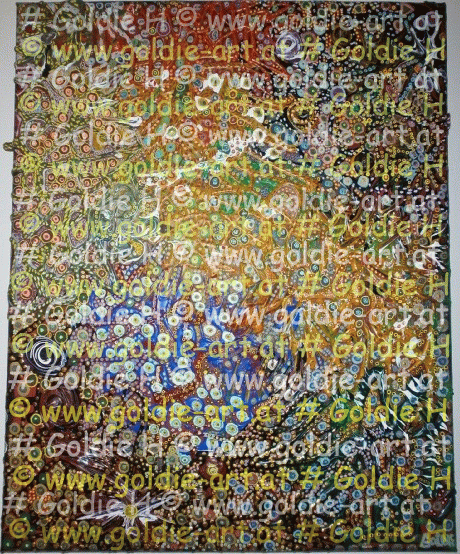 # Goldie H © www.goldie-art.at
© www.goldie-art.at # Goldie H
# Goldie H © www.goldie-art.at
© www.goldie-art.at # Goldie H
# Goldie H © www.goldie-art.at
© www.goldie-art.at # Goldie H
# Goldie H © www.goldie-art.at
© www.goldie-art.at # Goldie H
# Goldie H © www.goldie-art.at
© www.goldie-art.at # Goldie H
# Goldie H © www.goldie-art.at
© www.goldie-art.at # Goldie H
# Goldie H © www.goldie-art.at
© www.goldie-art.at # Goldie H
# Goldie H © www.goldie-art.at
© www.goldie-art.at # Goldie H
# Goldie H © www.goldie-art.at
© www.goldie-art.at # Goldie H